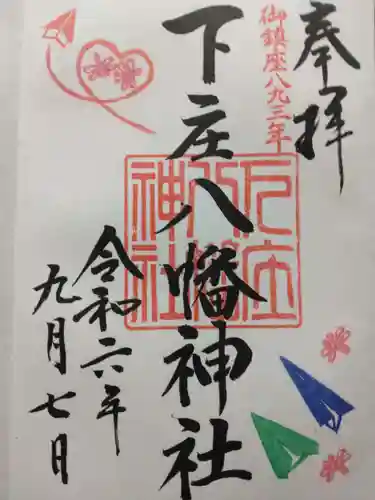 奉拝
御鎮座八九三年
下庄八幡神社
令和六年
九月七日